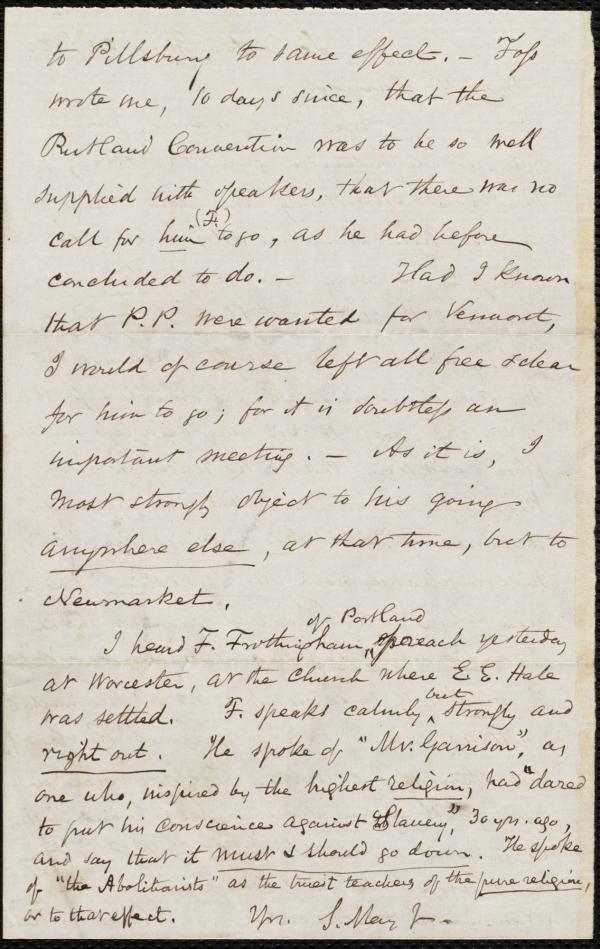 to Pillsbury to same effect. – Foss
wrote me, 10 days since, that the
Rutland Convention was to be so well
supplied with speakers, that there was no
(F.)
call for him to go, as he had before
concluded to do. – Had I known
that P.P. were wanted for Vermont,
I would of course left all free & clear
for him to go; for it is doubtless an
important meeting. – As it is, I
most strongly object to his going
anywhere else, at that time, but to
Newmarket.
of Portland
I heard F. Frothingham, preach yesterday
at Worcester, at the Church where E. E. Hale
but
was settled. F. speaks calmly, strongly and
right out. He spoke of "Mr. Garrison", as
one who, inspired by the highest religion, had "dared
to put his conscience against Slavery", 30 yrs. ago,
and say that it must & should go down. He spoke
of "the Abolitionists" as the truest teachers of the pure religion,
or to that effect. Yrs. S. May Jr.